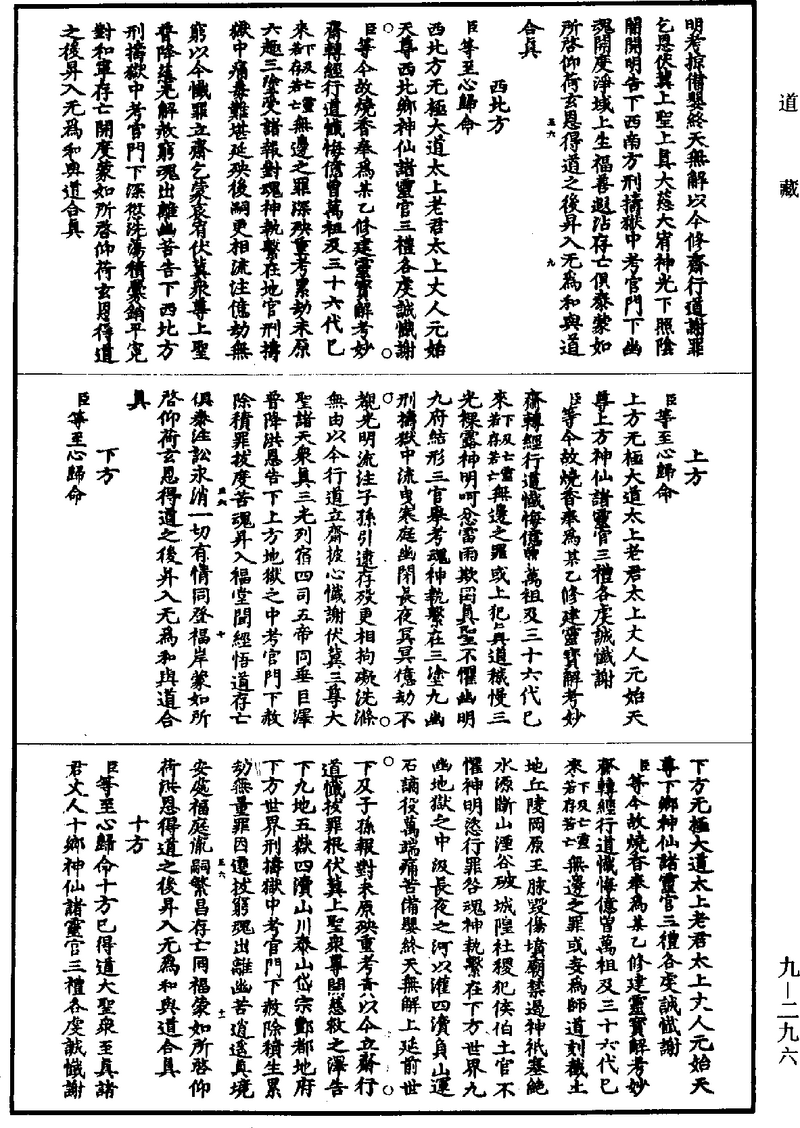 道藏
明考掠備嬰終天無解以今修齋行道謝罪
乞恩伏冀上聖上真大慈大宥神光下照陰
闇開明告下西南方刑擣獄中考官門下幽
魂開度淨域上生福善遐沾存亡俱泰蒙如
所啓仰荷玄恩得道之後昇入无爲和與道
合真
西北方
臣等至心歸命
西北方无極大道太上老君太上丈人元始
天尊西北鄉神仙諸靈官三禮各虔誠懺謝
臣等今故燒香奉爲某乙修建靈寶解考妙
齋轉經行道懺悔億曾萬祖及三十六代已
來若存若亡下及亡靈無邊之罪深殃重考累劫未原
六趣三塗受諸報對魂神執繫在地官刑擣
獄中痛毒難堪延殃後嗣更相流注億劫無
窮以今懺罪立齋乞蒙哀宥伏冀衆尊上聖
普降慈光解救窮魂出離幽苦告下西北方
刑擣獄中考官門下深愆洗蕩積釁銷平冤
對和寧存亡開度蒙如所啓仰荷玄恩得道
之後昇入无爲和與道合真
上方
臣等至心歸命
上方无極大道太上老君太上丈人元始天
尊上方神仙諸靈官三禮各虔誠懺謝
臣等今故燒香奉爲某乙修建靈寶解考妙
齋轉經行道懺悔億曾萬祖及三十六代已
來若存若亡下及亡靈無邊之罪或上犯與道穢慢三
光裸露神明呵忿雷雨欺罔真聖不懼幽明
九府結形三官舉考魂神執繫在三塗九幽
刑擣獄中流曳寒庭幽閉長夜冥冥億劫不
覩光明流注子孫引逮存歿更相拘礙洗滌
無由以今行道立齋披心懺謝伏冀三尊大
聖諸天衆真三光列宿四司五帝同垂巨澤
普降洪恩告下上方地獄之中考官門下赦
除積罪拔度苦魂昇入福堂聞經悟道存亡
俱泰注訟永消一切有情同登福岸蒙如所
啓仰荷玄恩得道之後昇入无爲和與道合
真
下方
臣等至心歸命
下方无極大道太上老君太上丈人元始天
尊下鄉神仙諸靈官三禮各虔誠懺謝
臣等今故燒香奉爲某乙修建靈寶解考妙
齋轉經行道懺悔億曾萬祖及三十六代已
來若存若亡下及亡靈無邊之罪或妄爲師道刻穢土
地丘陵岡原王脉毀傷墳廟禁遏神祇塞絶
水源斷山湮谷破城隍社稷犯侯伯土官不
懼神明恣行罪咎魂神執繫在下方世界九
幽地獄之中汲長夜之河以灌四瀆負山運
石謫役萬端痛苦備嬰終天無解上延前世
下及子孫報對未原殃重考責以今立齋行
道懺拔罪根伏冀上聖衆尊開慈救之澤告
下九地五嶽四瀆山川泰山岱宗酆都地府
下方世界刑擣獄中考官門下赦除積生累
劫無量罪因遷拔窮魂出離幽苦逍遥真境
安處福庭流嗣繁昌存亡同福蒙如所啓仰
荷洪恩得道之後昇入无爲和與道合真
十方
臣等至心歸命十方已得道大聖衆至真諸
君丈人十鄉神仙諸靈官三禮各虔誠懺謝
九—二九六